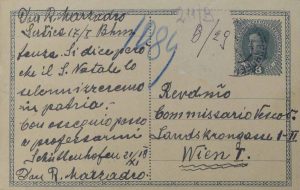 Don R. Marzadro
Sušice 17/I Böhm
fanza. Si dice però
che il S. Natale lo
solennizzeremo
in patria.
Con ossequio passo
a professarmi
Schüttenhofen 21/XI
Don R. Marzadro
1184
8/29
3
Revdmo
Commissario Vescov.
Landskrongasse 1-II
Wien I.